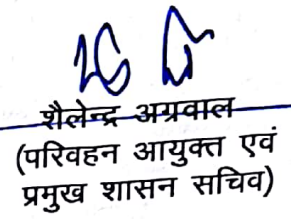 शैलेन्द्र अग्रवाल
(परिवहन आयुक्त एवं
प्रमुख शासन सचिव)